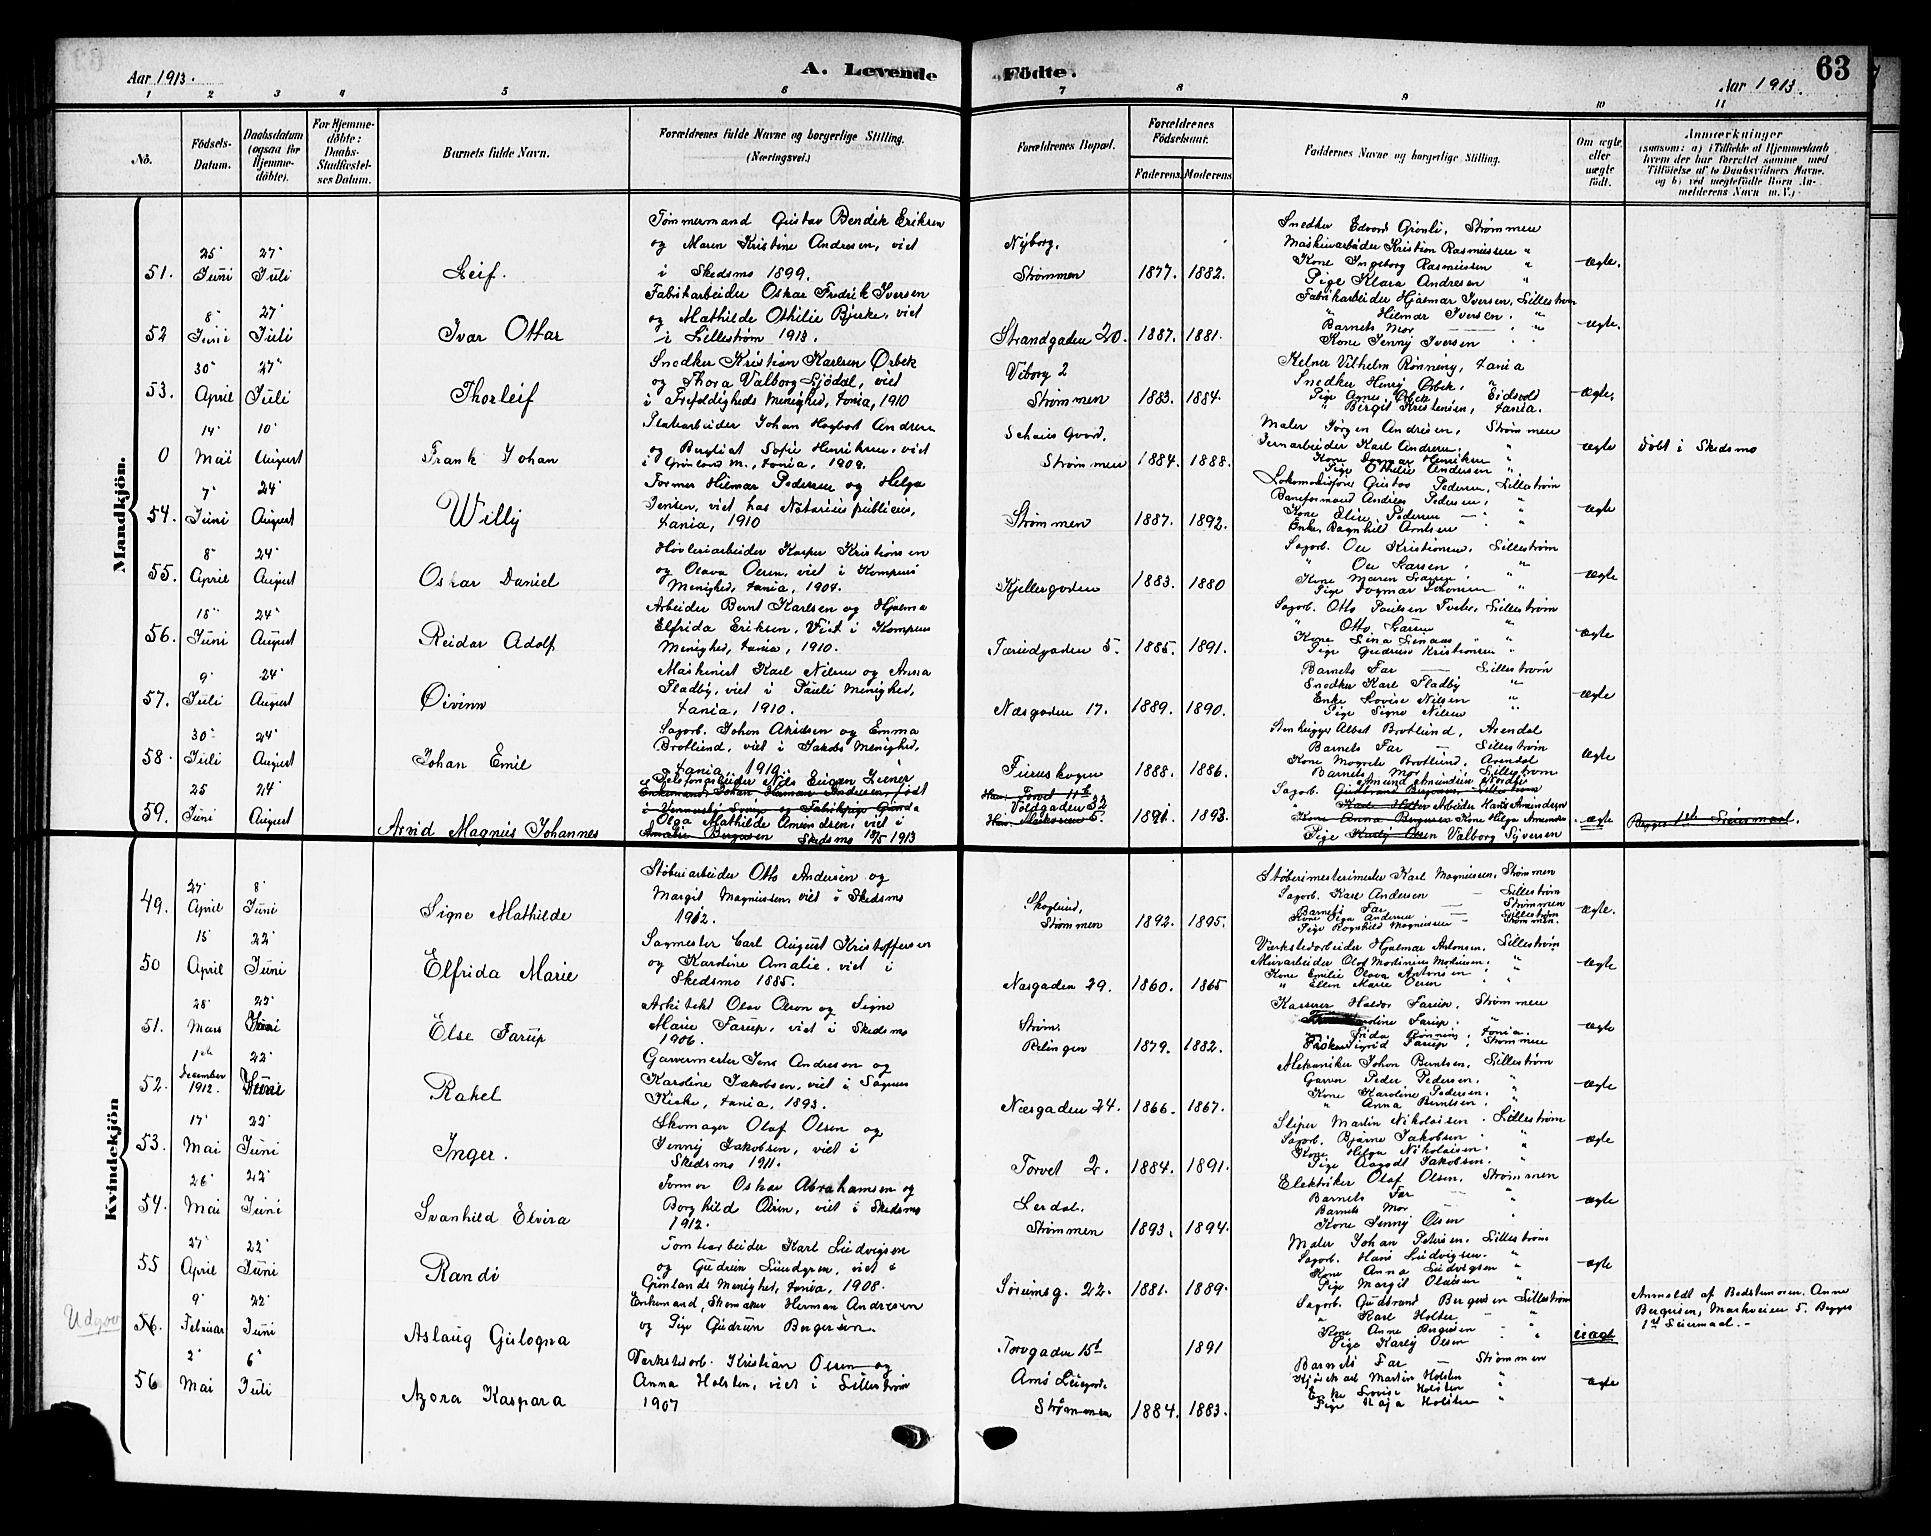 Aar 1913.
A. Levende Födte.
63
Aar 1913.
1 2 3 4 5 6 7 8 9 10 11
No.
Födsels-
Datum.
Daabsdatum
(ogsaa for
Hjemme-
döbte).
For Hjemme-
döbte:
Daabs-
Stadfæstel-
ses Datum.
Barnets fulde Navn.
Forældrenes fulde Navne og borgerlige Stilling.
(Næringsvei.)
Forældrenes Bopæl.
Forældrenes
Födselsaar.
Faderens. Moderens.
Faddernes Navne og borgerlige Stilling.
Om ægte
eller
uægte
født.
Anmærkninger
(saasom: a) i Tilfælde af Hjemmedaab
hvem der har forrettet samme med
Tilföielse af to Daabsvidners Navne,
og b) ved uægtefödte Börn An-
melderens Navn m. V.)
Mandkjön.
51. 25 Juni 27 Juli
Leif.
Tømmermand Gustav Bendik Eriksen
og Maren Kristine Andresen, viet
i Skedsmo 1899.
Nyborg,
Strømmen 1877. 1882.
Snedker Edvard Grönli, Strømmen
Maskinarbeider Kristian Rasmussen "
Kone Ingeborg Rasmussen "
Pige Klara Andresen "
ægte.
52 8 Juni 27 Juli
Ivar Ottar
Fabrikarbeider Oskar Fredrik Iversen
og Mathilde Othilie Bjerke, viet
i Lillestrøm 1913.
Strandgaden 20. 1887. 1881.
Fabrikarbeider Hjalmar Iversen, Lillestrøm
" Hilmar Iversen. "
Barnets Mor "
Kone Jenny Iversen "
ægte.
53. 30 April 27 Juli
Thorleif
Snedker Kristian Karlsen Ørbek
og Thora Valborg Sjödal, viet
i Trefoldigheds Menighed, Xania, 1910
Viborg 2
Strømmen 1883. 1884.
Kelner Vilhelm Rönning, Xania
Snedker Henry Ørbek, "
Pige Agnes Ørbek, Eidsvold
" Birgit Kristensen, Xania.
ægte.
0 14 Mai 10 August
Frank Johan
Platearbeider Johan Hagbart Andresen
og Bergliot Sofie Henriksen, viet
i Grönland M., Xania, 1909.
Schaus Gaard,
Strømmen 1884. 1888.
Maler Jörgen Andresen, Strømmen
Jernarbeider Karl Andresen, "
Kone Dagmar Henriksen "
Pige Othilie Andersen "
ægte
Döbt i Skedsmo
54. 7 Juni 24 August
Willy
Former Hilmar Pedersen og Helga
Jensen, viet hos Notarius publicus,
Xania, 1910
Strømmen 1887. 1892.
Lokomotivförer Gustav Pedersen, Lillestrøm
Baneformand Andreas Pedersen, "
Kone Elise Pedersen "
Enke Ragnhild Arntsen "
ægte
55. 8 April 24 August
Oskar Daniel
Høvleriarbeider Kasper Kristiansen
og Olava Olsen, viet i Kampens
Menighed, Xania, 1904.
Kjellergaden 1883. 1880
Sagarb. Ole Kristiansen, Lillestrøm
" Ole Larsen "
Kone Maren Larsen "
Pige Dagmar Johansen "
ægte
56. 18 Juni 24 August
Reidar Adolf
Arbeider Bernt Karlsen og Hjalma
Elfrida Eriksen, Viet i Kampens
Menighed, Xania, 1910.
Tærudgaden 5. 1885. 1891.
Sagarb. Otto Paulsen Tveter, Lillestrøm
" Otto Larsen "
Kone Lina Linaas "
Pige Gudrun Kristiansen "
ægte
57. 9 Juli 24 August
Øivinn
Maskinist Karl Nilsen og Anna
Fladby, viet i Pauli Menighed,
Xania, 1910.
Næsgaden 17. 1889. 1890.
Barnets Far Lillestrøm
Snedker Karl Fladby "
Enke Lovise Nilsen "
Pige Signe Nilsen "
ægte
58. 30 Juli 24 August
Johan Emil
Sagarb. Johan Akersen og Emma
Brotlund, viet i Jakobs Menighed,
Xania 1910.
Furuskogen 1888. 1886.
Stenhugger Albert Brotlund, Arendal
Barnets Far Lillestrøm
Kone Magrete Brotlund, Arendal
Barnets Mor Lillestrøm
ægte
59. 25 Juni 24 August
Arvid Magnus Johannes
Telefonarbeider Nils Eugen Zeiner
Olga Mathilde Amundsen, viet i
Skedsmo 18/5 1913
Voldgaden 32
1891. 1893.
Sagarb.
" Arbeider Hans Amundsen
Kone Helga Amundsen
Pige Valborg Syversen
ægte
Kvindekjön
49. 27 April 8 Juni
Signe Mathilde
Støberiarbeider Otto Andersen og
Margit Magnussen, viet i Skedsmo
1912.
Skoglund,
Strømmen 1892. 1895.
Støberimesterimester Karl Magnussen, Strømmen
Sagarb. Karl Andersen Lillestrøm
Barnets Far Strømmen
Kone Olga Andersen Lillestrøm
Pige Ragnhild Magnussen Strømmen.
ægte.
50 15 April 22 Juni
Elfrida Marie
Sagmester Carl August Kristoffersen
og Karoline Amalie, viet i
Skedsmo 1885.
Næsgaden 29. 1860. 1865
Værkstedarbeider Hjalmar Antonsen, Lillestrøm
Murarbeider Olaf Martinius Martinsen, "
Kone Emilie Olava Antonsen "
" Ellen Marie Olsen "
ægte
51. 28 Mars 22 Juni
Else Farup
Arkitekt Olav Olson og Signe
Marie Farup, viet i Skedsmo
1906.
Strøm,
Rælingen 1879. 1882.
Kasserer Haldor Farup, Strømmen
Karoline Farup, "
Frida Rønning, Xania.
Frøken Sigrid Farup, Strømmen
ægte
52. 1ste December 1912. 22 Juni
Rakel
Garvermester Jens Andresen og
Karoline Jakobsen, viet i Sagenes
Kirke, Xania, 1893.
Næsgaden 24. 1866. 1867.
Mekaniker Johan Berntsen, Lillestrøm
Garver Peder Pedersen, "
Kone Karoline Pedersen, "
" Anna Berntsen "
ægte
53. 17 Mai 22 Juni
Inger.
Skomager Olaf Olsen og
Jenny Jakobsen, viet i
Skedsmo 1911.
Torvet 2. 1884. 1891.
Sliper Martin Nikolaisen Lillestrøm
Sagarb. Bjarne Jakobsen "
Kone Helga Nikolaisen "
Pige Aagodt Jakobsen. "
ægte
54. 26 Mai 22 Juni
Svanhild Elvira
Former Oskar Abrahamsen og
Borghild Olsen, viet i Skedsmo
1912.
Lerdal.
Strømmen 1893. 1894.
Elektriker Olaf Olsen, Strømmen
Barnets Far "
Barnets Mor "
Kone Jenny Olsen "
ægte
55 27 April 22 Juni
Randi
Tomtarbeider Karl Ludvigsen
og Gudrun Lundgren, viet i
Grönlands Menighed, Xania, 1908.
Sörumsg. 22. 1881. 1889.
Maler Johan Petersen, Lillestrøm
Sagarb. Hans Ludvigsen "
Kone Anna Ludvigsen "
Pige Margit Olausen "
ægte
Udgaar
56. 9 Februar 22 Juni
Aslaug Gulogna
Enkemand, Skomaker Herman Andresen
og Pige Gudrun Bergersen.
Torvgaden 15b 1891
Sagarb. Gudbrand Bergersen Lillestrøm
" Karl Holter "
Kone Anne Bergersen "
Pige Karly Olsen "
uægt
Anmeldt af Bedstemoren. Anne
Bergersen, Markveien 5. Begges
1ste Leiermaal.
56 2 Mai 6 Juli
Azora Kaspara
Verkstedarb. Kristian Olsen og
Anna Holsten, viet i Lillestrøm
1907
Amö Leiegaard
Strømmen 1884. 1883.
Barnets Far Strømmen
Martin Holsten "
Enke Lovise Holsten "
Pige Kaja Holsten "
ægte